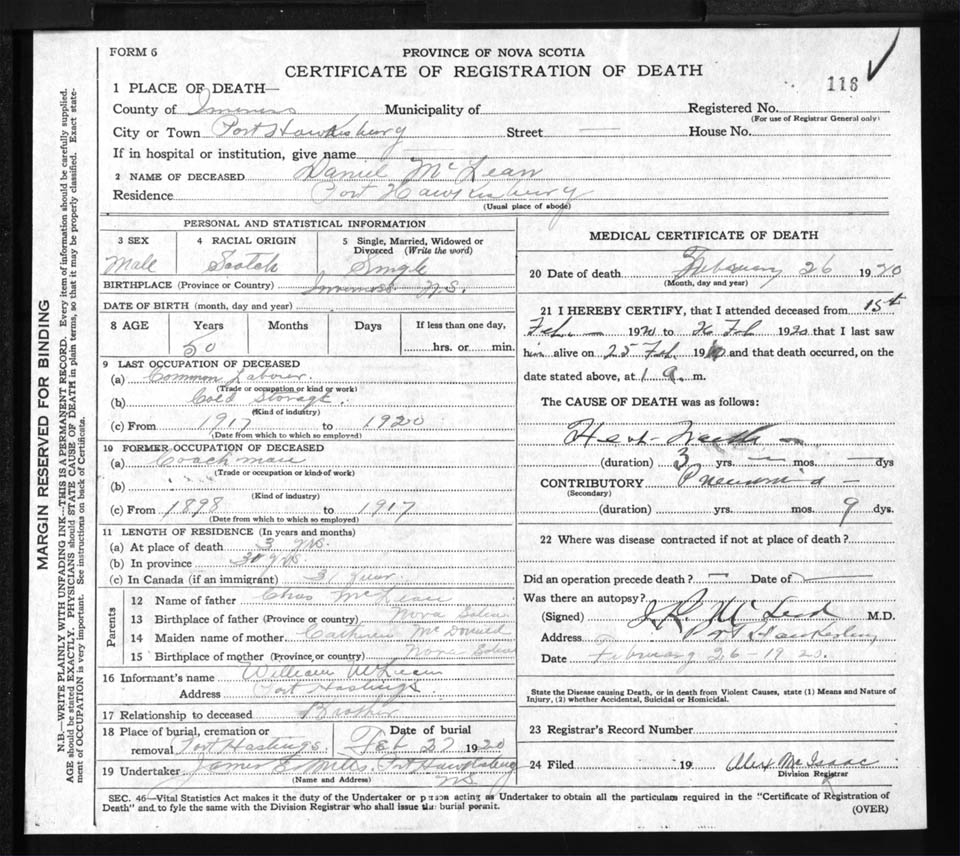 FORM 6
PROVINCE OF NOVA SCOTIA
CERTIFICATE OF REGISTRATION OF DEATH
118
1 PLACE OF DEATH—
County of Inverness Municipality of Registered No.
(For use of Registrar General only)
City or Town Port Hawkesbury Street — House No.
If in hospital or institution, give name
2 NAME OF DECEASED Daniel McLean
Residence Port Hawkesbury
(Usual place of abode)
PERSONAL AND STATISTICAL INFORMATION
3 SEX 4 RACIAL ORIGIN 5 Single, Married, Widowed or
Divorced (Write the word)
Male Scotch Single
BIRTHPLACE (Province or Country) Inverness N.S.
DATE OF BIRTH (month, day and year)
8 AGE Years Months Days If less than one day,
50 hrs. or min.
9 LAST OCCUPATION OF DECEASED
(a) Common Laborer
(Trade or occupation or kind or work)
(b) Cold Storage
(Kind of industry)
(c) From 1917 to 1920
(Date from which to which so employed)
10 FORMER OCCUPATION OF DECEASED
(a) Coachman
(Trade or occupation or kind of work)
(b)
(Kind of industry)
(c) From 1898 to 1917
(Date from which to which so employed)
11 LENGTH OF RESIDENCE (In years and months)
(a) At place of death 3 yrs.
(b) In province yrs
(c) In Canada (if an immigrant)
Parents
12 Name of father Chas McLean
13 Birthplace of father (Province or country) Nova Scotia
14 Maiden name of mother McDonald
15 Birthplace of mother (Province or country) Nova Scotia
16 Informant's name William McLean
Address Port Hastings
17 Relationship to deceased Brother
18 Place of burial, cremation or Date of burial
removal Port Hastings Feb 27 1920
19 Undertaker James E Mills, Port Hawkesbury
(Name and Address) N.S.
MEDICAL CERTIFICATE OF DEATH
20 Date of death February 26 1920
(Month, day and year)
21 I HEREBY CERTIFY, that I attended deceased from 15th
Feb. — 1920 to 26 Feb 1920 that I last saw
him alive on 25 Feb 19 and that death occurred, on the
date stated above, at 1 a. m.
The CAUSE OF DEATH was as follows:
(duration) 3 yrs. — mos. — dys
CONTRIBUTORY Pneumonia —
(Secondary)
(duration) yrs. mos. 9 dys.
22 Where was disease contracted if not at place of death?
Did an operation precede death? — Date of —
Was there an autopsy?
(Signed) McLeod M.D.
Address Port Hawkesbury
Date February 26 - 1920.
State the Disease causing Death, or in death from Violent Causes, state (1) Means and Nature of
Injury, (2) whether Accidental, Suicidal or Homicidal.
23 Registrar's Record Number
24 Filed 19 Alex McIsaac
Division Registrar
SEC. 46—Vital Statistics Act makes it the duty of the Undertaker or person acting as Undertaker to obtain all the particulars required in the "Certificate of Registration of
Death" and to fyle the same with the Division Registrar who shall issue the burial permit.
(OVER)
MARGIN RESERVED FOR BINDING
N.B.—WRITE PLAINLY WITH UNFADING INK—THIS IS A PERMANENT RECORD. Every item of information should be carefully supplied.
AGE should be stated EXACTLY. PHYSICIANS should STATE CAUSE OF DEATH in plain terms, so that it may be properly classified. Exact state-
ment of OCCUPATION is very important. See instructions on back of Certificate.